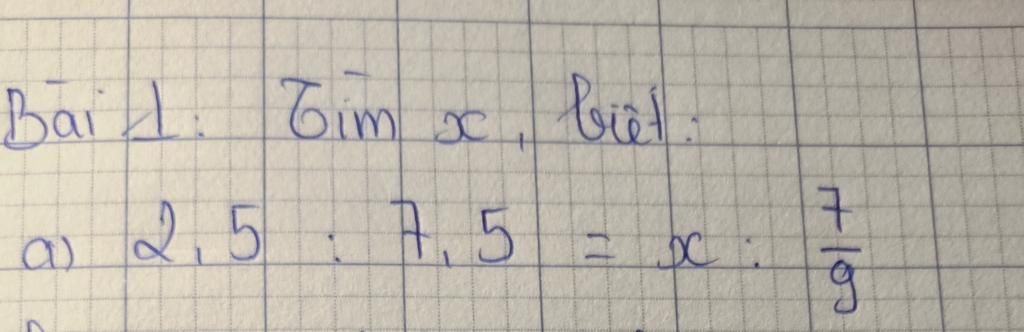 Bài 1: Tìm x, biết:
a) 2,5 : 7,5 = x : 7/9